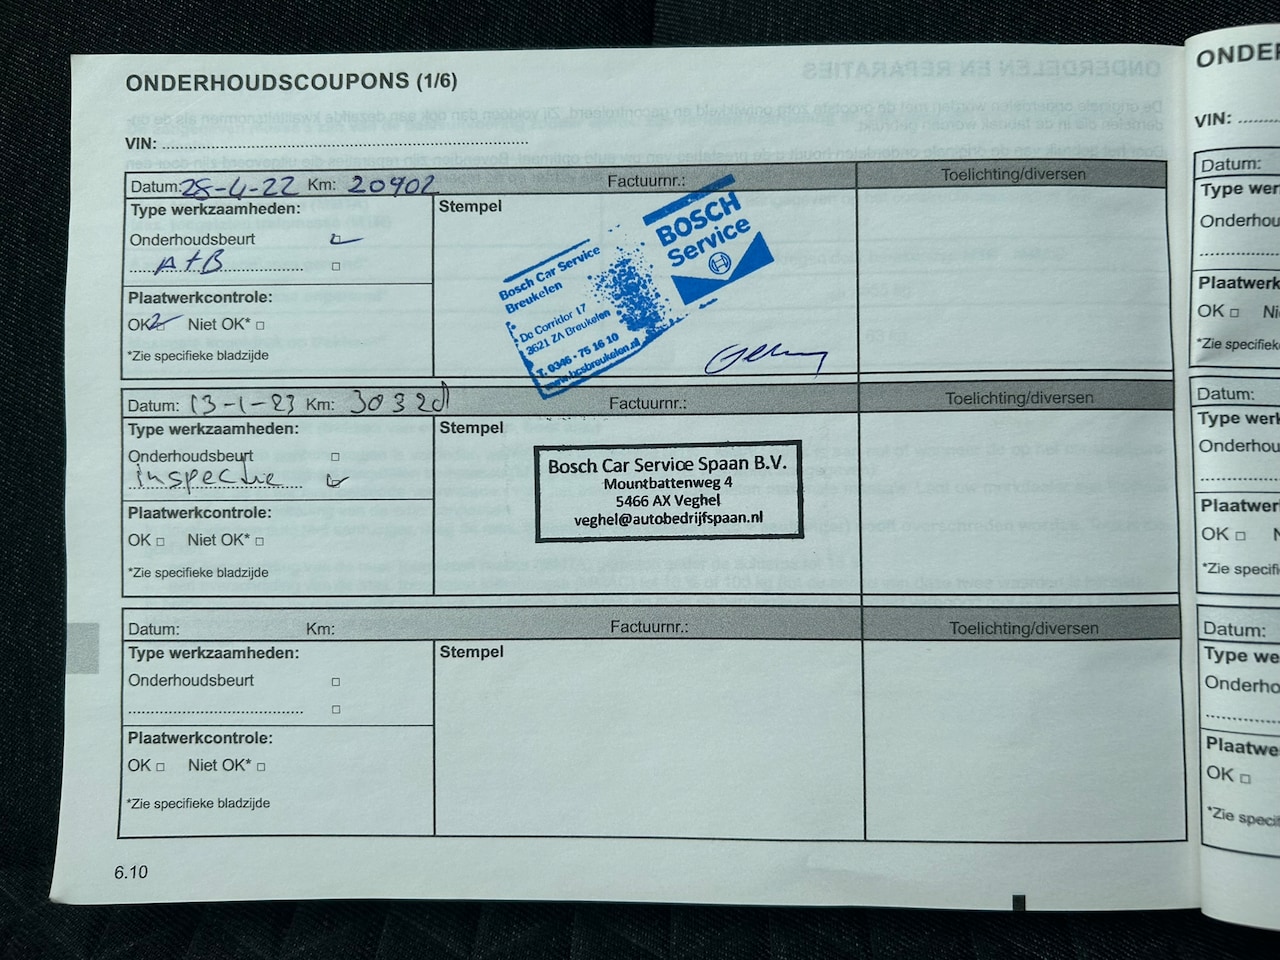 ONDERHOUDSCOUPONS (1/6)
VIN:
Datum: 28-4-22 Km: 20902 Factuurnr.: Toelichting/diversen
Type werkzaamheden:
Onderhoudsbeurt
A+B
Plaatwerkcontrole:
OK Niet OK*
*Zie specifieke bladzijde
Stempel
BOSCH
Service
Bosch Car Service
Breukelen
De Corridor 17
3621 ZA Breukelen
T. 0346 - 75 16 10
www.bcsbreukelen.nl
Datum: 13-1-23 Km: Factuurnr.: Toelichting/diversen
Type werkzaamheden:
Onderhoudsbeurt
inspectie
Plaatwerkcontrole:
OK Niet OK*
*Zie specifieke bladzijde
Stempel
Bosch Car Service Spaan B.V.
Mountbattenweg 4
5466 AX Veghel
veghel@autobedrijfspaan.nl
Datum: Km: Factuurnr.: Toelichting/diversen
Type werkzaamheden:
Onderhoudsbeurt
Plaatwerkcontrole:
OK Niet OK*
*Zie specifieke bladzijde
Stempel
6.10
ONDER
VIN:
Datum:
Type wer
Onderhou
Plaatwerk
OK Ni
*Zie specifiek
Datum:
Type werk
Onderhou
Plaatwerk
OK N
*Zie specifi
Datum:
Type we
Onderho
Plaatwe
OK
*Zie speci